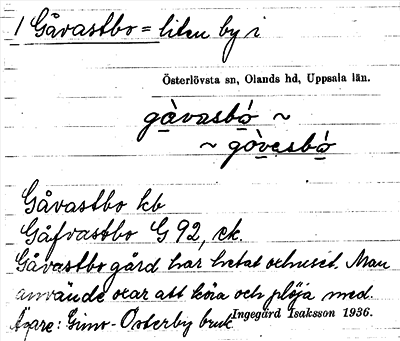 1 Gåvastbo = liten by i
Österlövsta sn, Olands hd, Uppsala län.
gàvasbó ~
~ gòvesbó
Gåvastbo kb
Gåfvastbo G 92, ek.
Gåvastbo gård har hetat oxhuset. Man
använde oxar att köra och plöja med.
Ägare: Gimo-Österby bruk
Ingegärd Isaksson 1936.